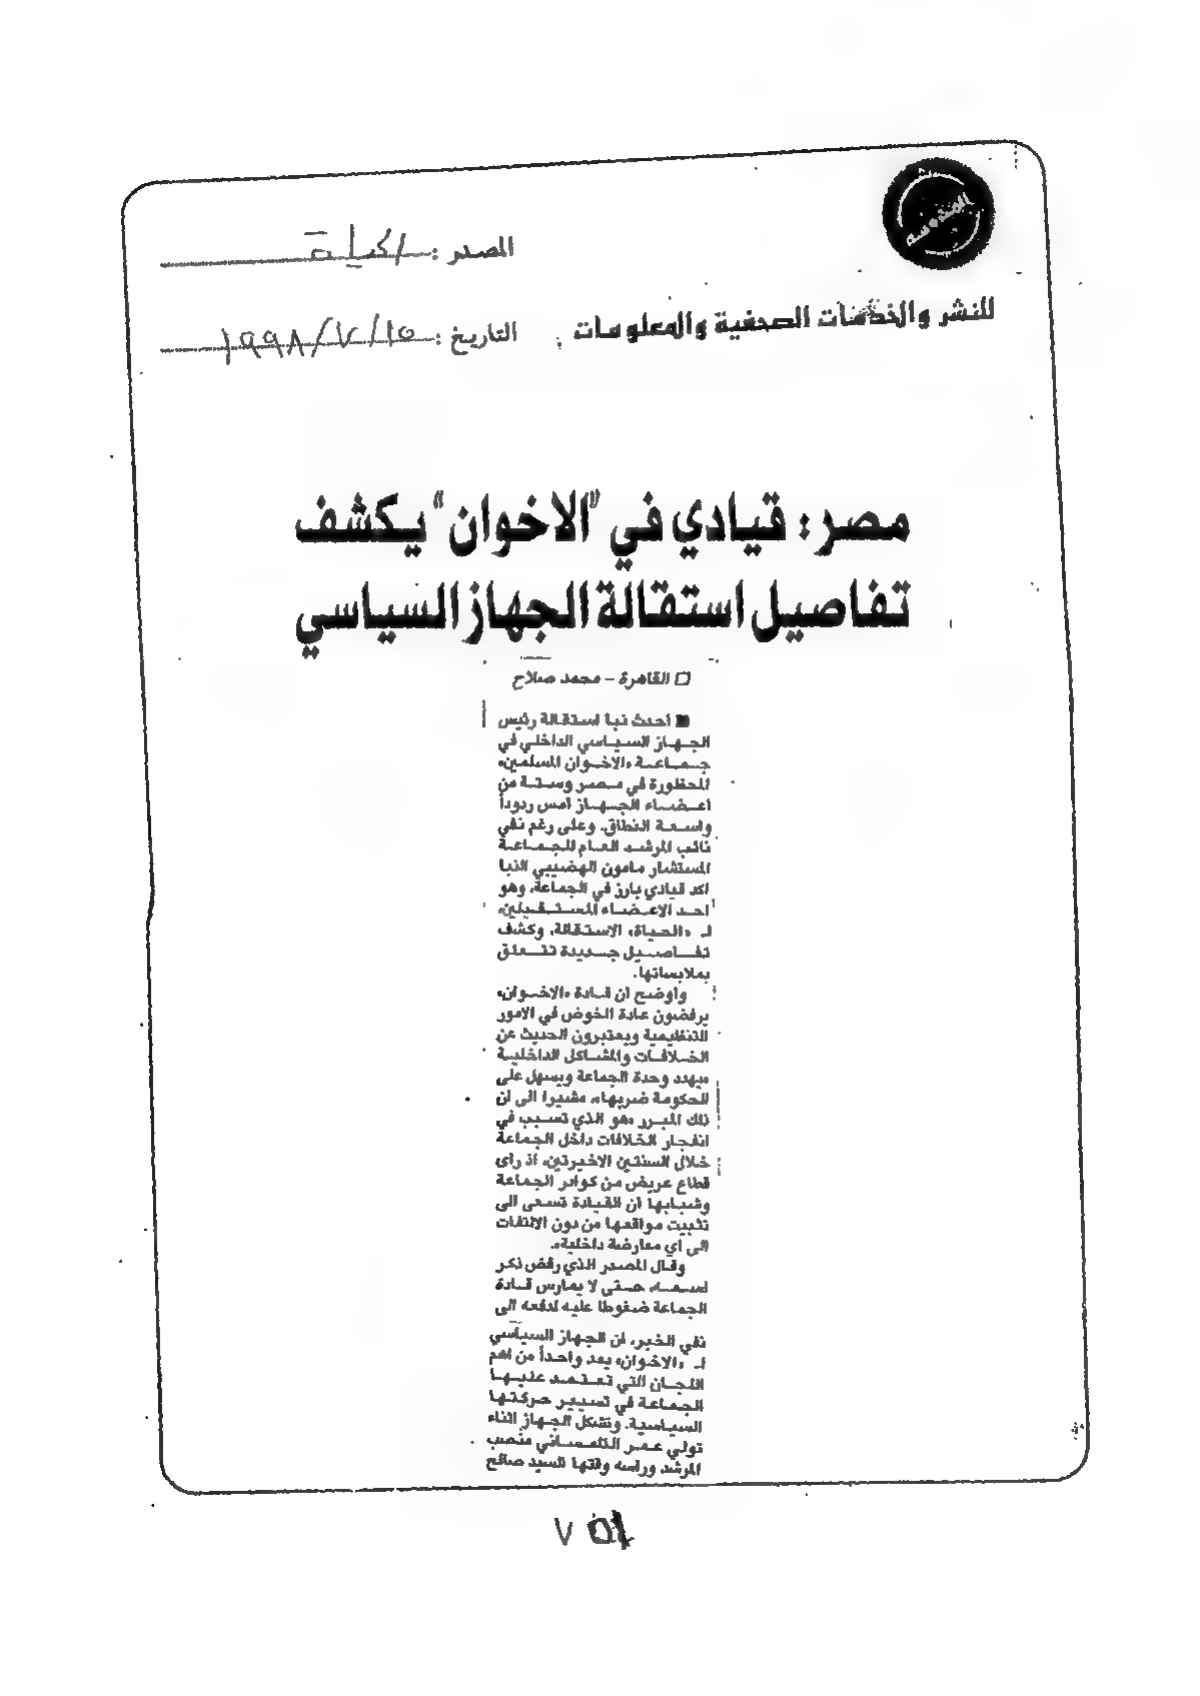 المصدر : الحياة
للنشر والخدمات الصحفية والمعلومات
التاريخ : ١٥/٧/١٩٩٨
مصر : قيادي في "الاخوان" يكشف
تفاصيل استقالة الجهاز السياسي
□ القاهرة – محمد صلاح
■ احدث نبا استقالة رئيس
الجهاز السياسي الداخلي في
جماعة «الاخوان المسلمين»
المحظورة في مصر وستة من
اعضاء الجهاز امس ردوداً
واسعة النطاق. وعلى رغم نفي
نائب المرشد العام للجماعة
المستشار مامون الهضيبي النبا
اكد قيادي بارز في الجماعة، وهو
احد الاعضاء المستقيلين،
لـ «الحياة» الاستقالة، وكشف
تفاصيل جديدة تتعلق
بملابساتها.
واوضح ان قادة «الاخوان»
يرفضون عادة الخوض في الامور
التنظيمية ويعتبرون الحديث عن
الخلافات والمشاكل الداخلية
«يهدد وحدة الجماعة ويسهل على
الحكومة ضربها»، مشيرا الى ان
ذلك المبرر «هو الذي تسبب في
انفجار الخلافات داخل الجماعة
خلال السنتين الاخيرتين، اذ راى
قطاع عريض من كوادر الجماعة
وشبابها ان القيادة تسعى الى
تثبيت مواقعها من دون الالتفات
الى أي معارضة داخلية».
وقال المصدر الذي رفض ذكر
اسمه، حتى لا يمارس قادة
الجماعة ضغوطا عليه لدفعه الى
نفي الخبر، ان الجهاز السياسي
لـ «الاخوان» يعد واحداً من اهم
اللجان التي تعتمد عليها
الجماعة في تسيير حركتها
السياسية. وتشكل الجهاز اثناء
تولي عمر التلمساني منصب
المرشد ورأسه وقتها السيد صالح